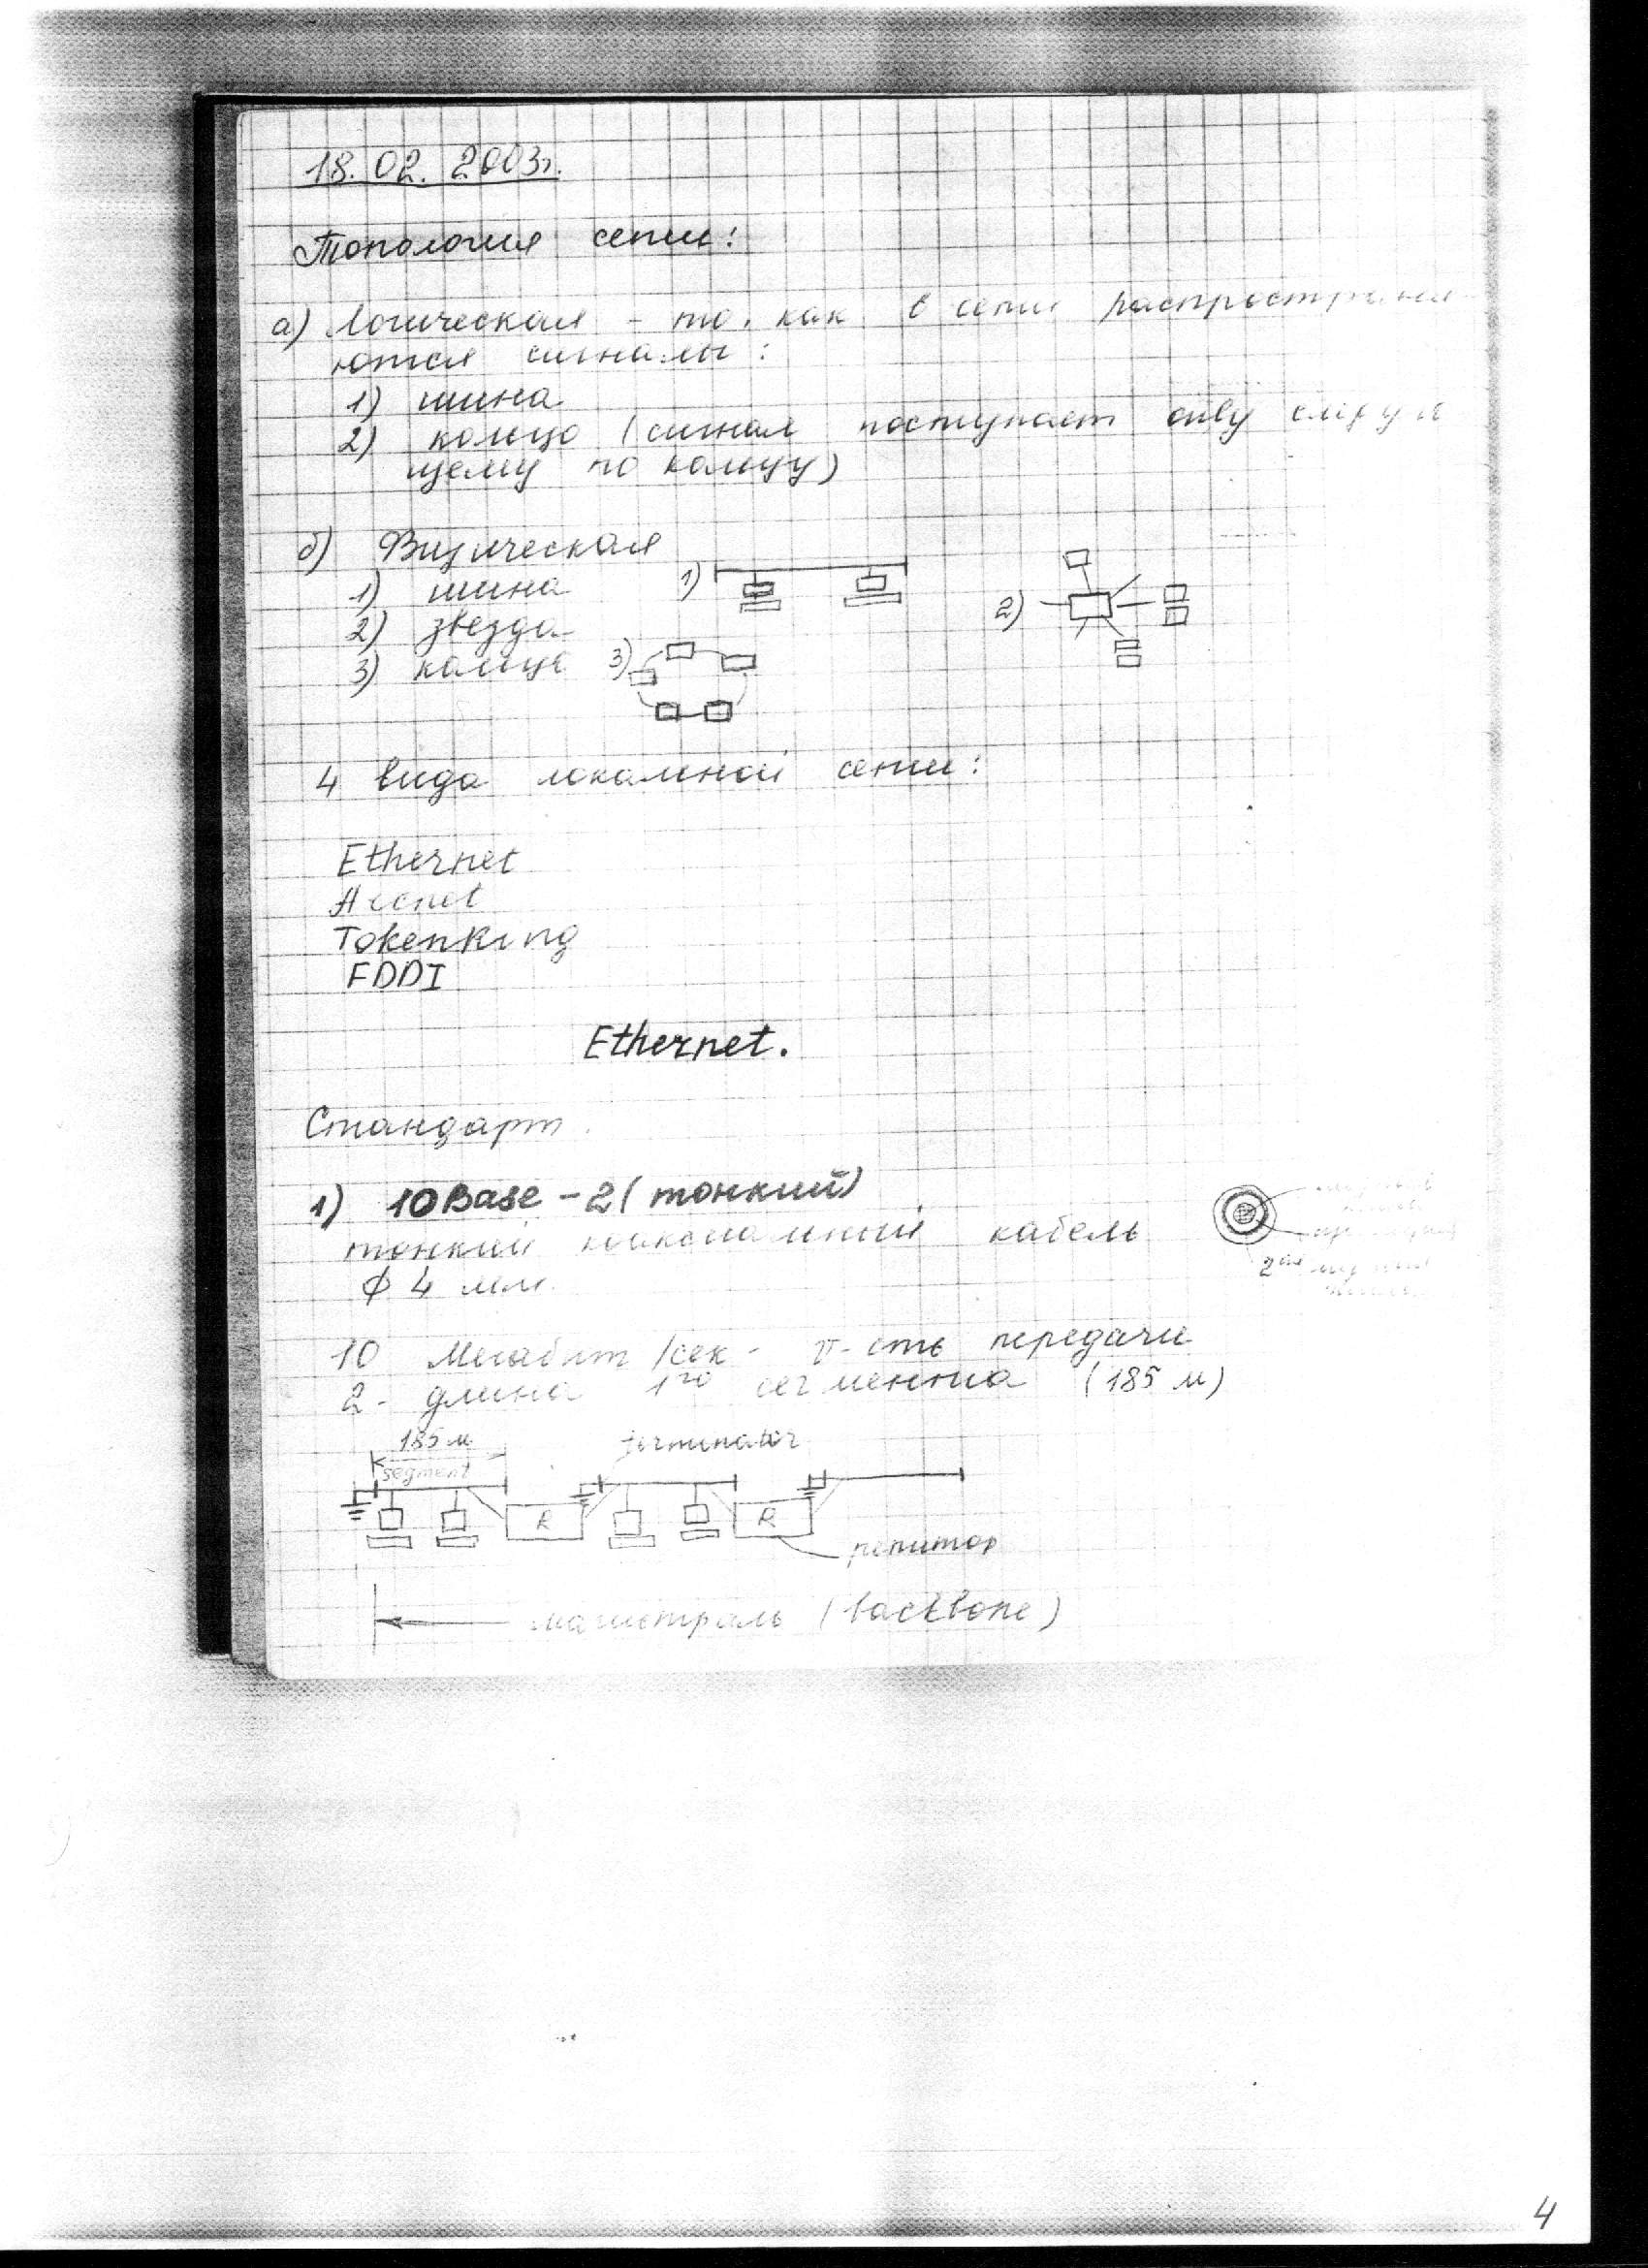 18.02.2003г.
Топология сети:
а) Логическая - то, как в сети распространя-
ются сигналы:
1) шина
2) кольцо (сигнал поступает только следую
щему по кольцу)
б) Физическая
1) шина
2) звезда
3) кольцо
1)
2)
3)
4 вида локальной сети:
Ethernet
Arcnet
TokenRing
FDDI
Ethernet.
Стандарт.
1) 10Base-2 (тонкий)
тонкий коаксиальный кабель
ф 4 мм.
2ая
10 Мегабит/сек - v-сть передачи
2 - длина 1го сегмента (185 м)
185 м
segment
terminator
R
R
репитор
магистраль (backbone)
4